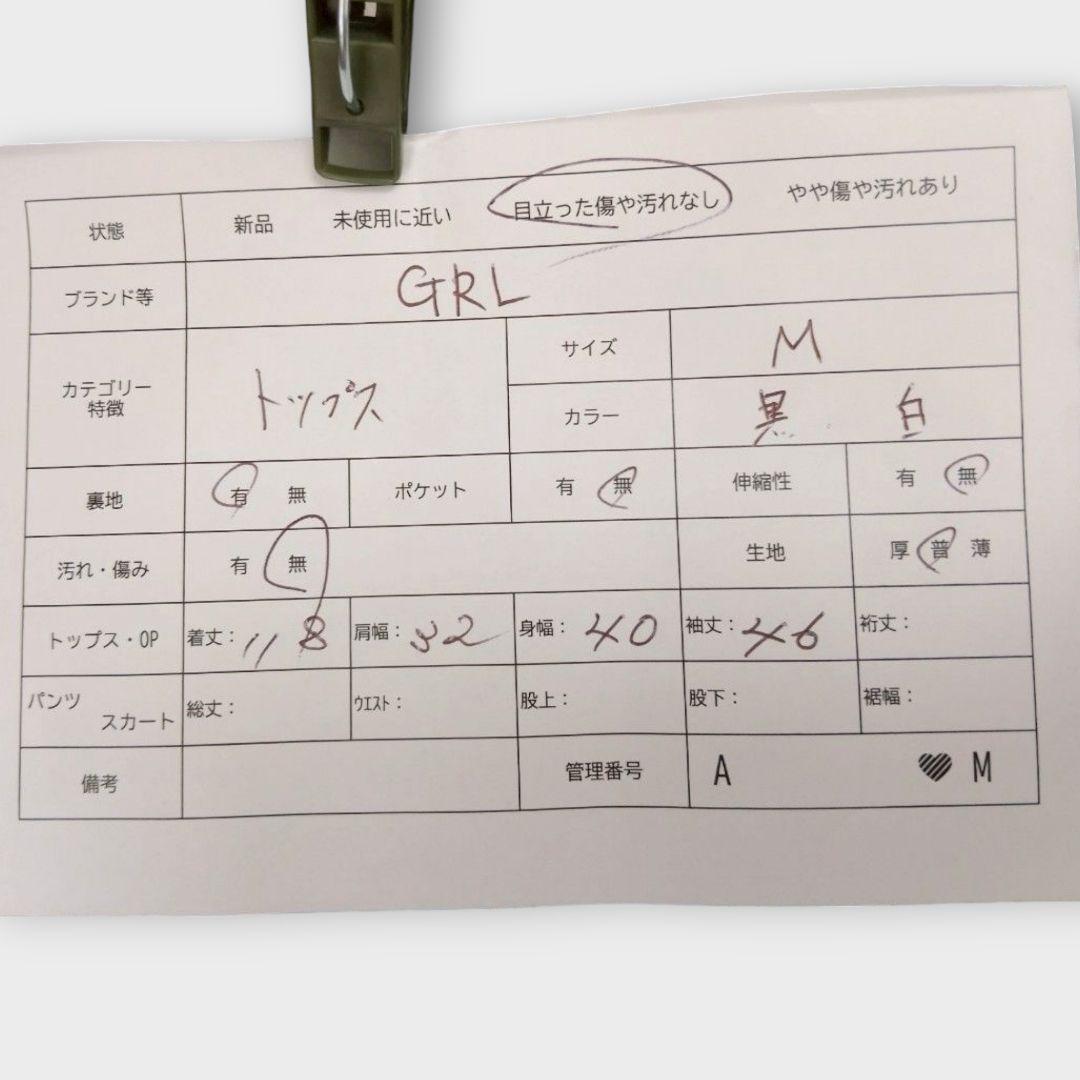 状態 新品 未使用に近い 目立った傷や汚れなし やや傷や汚れあり
ブランド等 GRL
カテゴリー 特徴 トップス サイズ M
カラー 黒 白
裏地 有 無 ポケット 有 無 伸縮性 有 無
汚れ・傷み 有 無 生地 厚 普 薄
トップス・OP 着丈：118 肩幅：32 身幅：40 袖丈：46 裄丈：
パンツ スカート 総丈： ｳｴｽﾄ： 股上： 股下： 裾幅：
備考 管理番号 A M